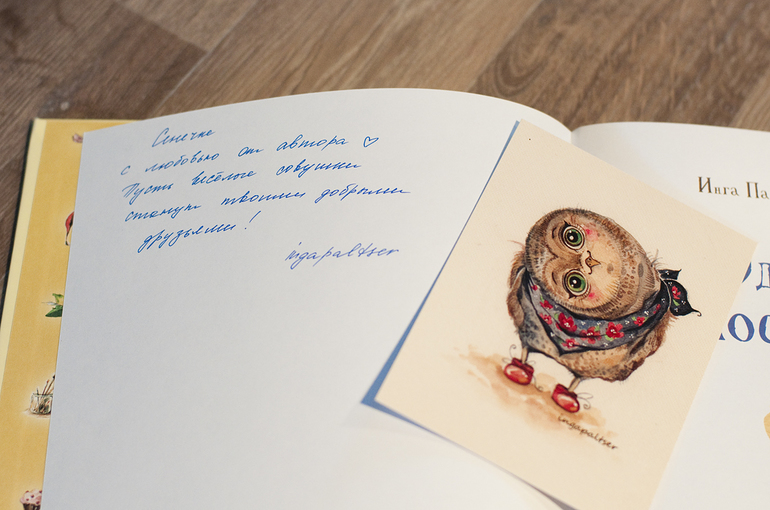 Сенечке
с любовью от автора ♡
Пусть весёлые совушки
станут твоими добрыми
друзьями!
ingapaltser
Инга Па
ingapaltser